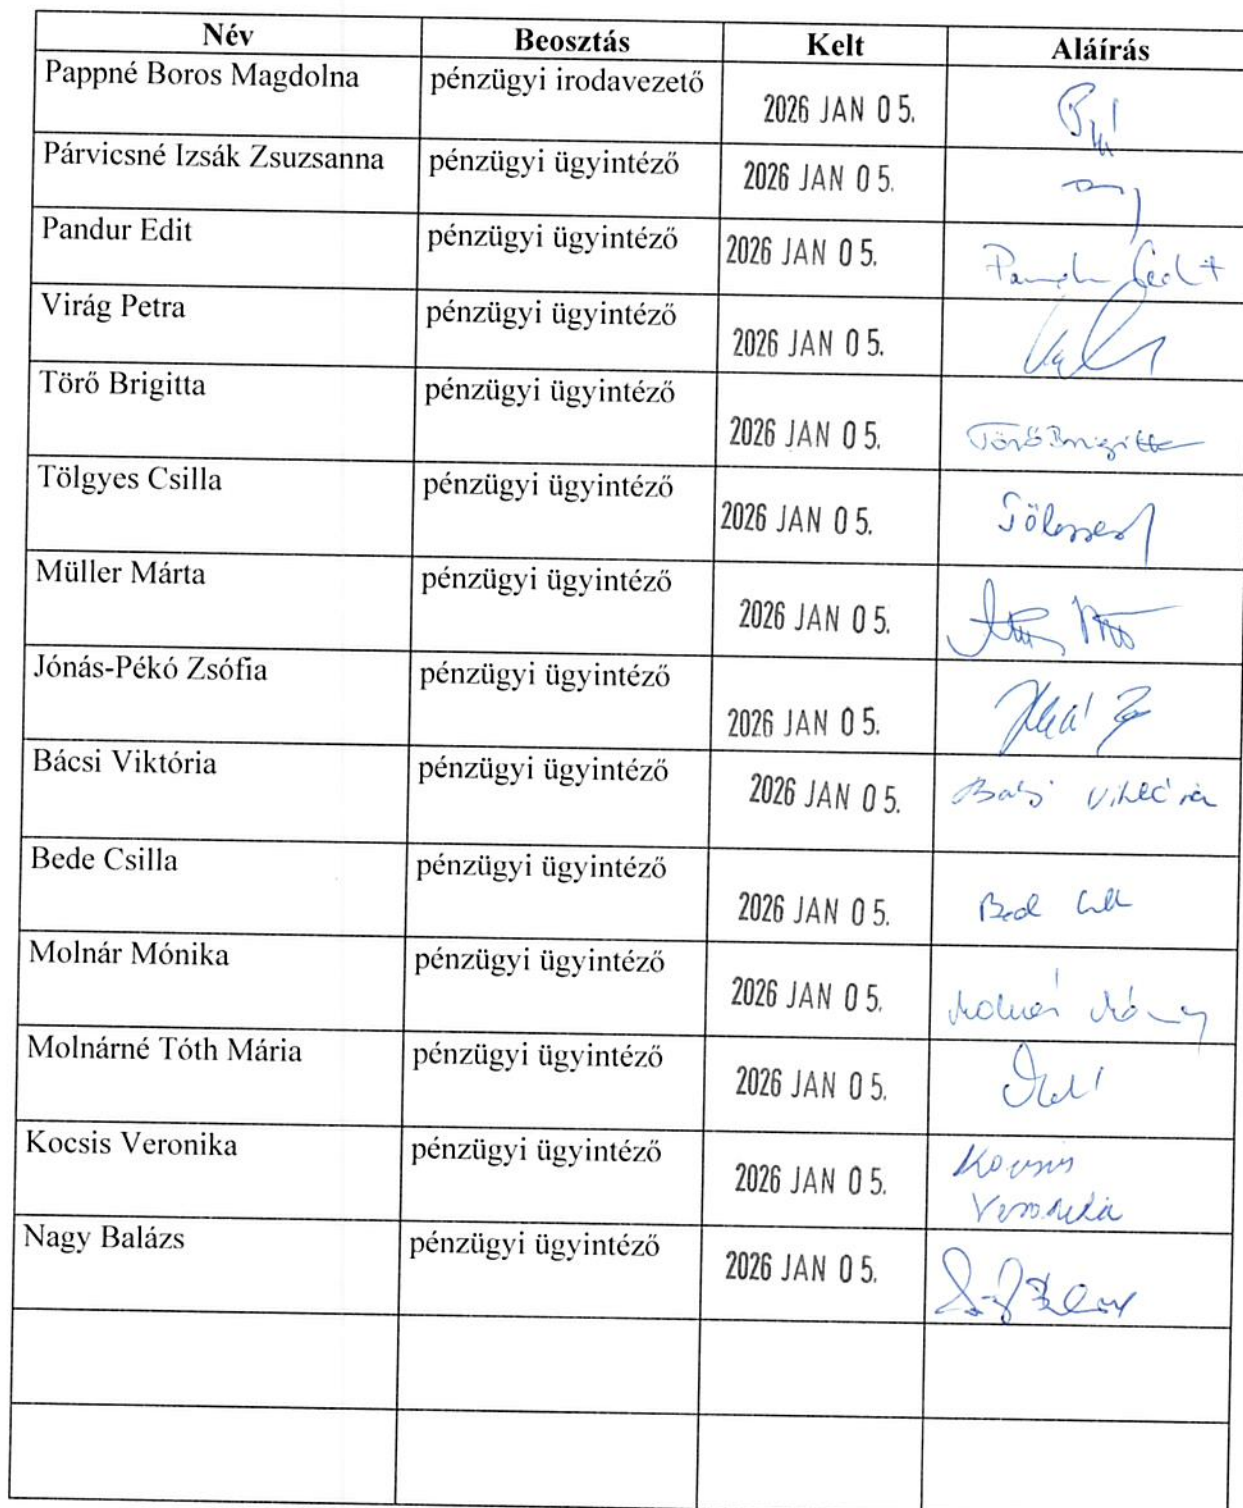 Név Beosztás Kelt Aláírás
Pappné Boros Magdolna pénzügyi irodavezető 2026 JAN 05.
Párvicsné Izsák Zsuzsanna pénzügyi ügyintéző 2026 JAN 05.
Pandur Edit pénzügyi ügyintéző 2026 JAN 05. Pandur Edit
Virág Petra pénzügyi ügyintéző 2026 JAN 05.
Törő Brigitta pénzügyi ügyintéző 2026 JAN 05. Törő Brigitta
Tölgyes Csilla pénzügyi ügyintéző 2026 JAN 05.
Müller Márta pénzügyi ügyintéző 2026 JAN 05.
Jónás-Pékó Zsófia pénzügyi ügyintéző 2026 JAN 05.
Bácsi Viktória pénzügyi ügyintéző 2026 JAN 05. Bácsi Viktória
Bede Csilla pénzügyi ügyintéző 2026 JAN 05.
Molnár Mónika pénzügyi ügyintéző 2026 JAN 05. Molnár
Molnárné Tóth Mária pénzügyi ügyintéző 2026 JAN 05.
Kocsis Veronika pénzügyi ügyintéző 2026 JAN 05. Kocsis
Veronika
Nagy Balázs pénzügyi ügyintéző 2026 JAN 05.